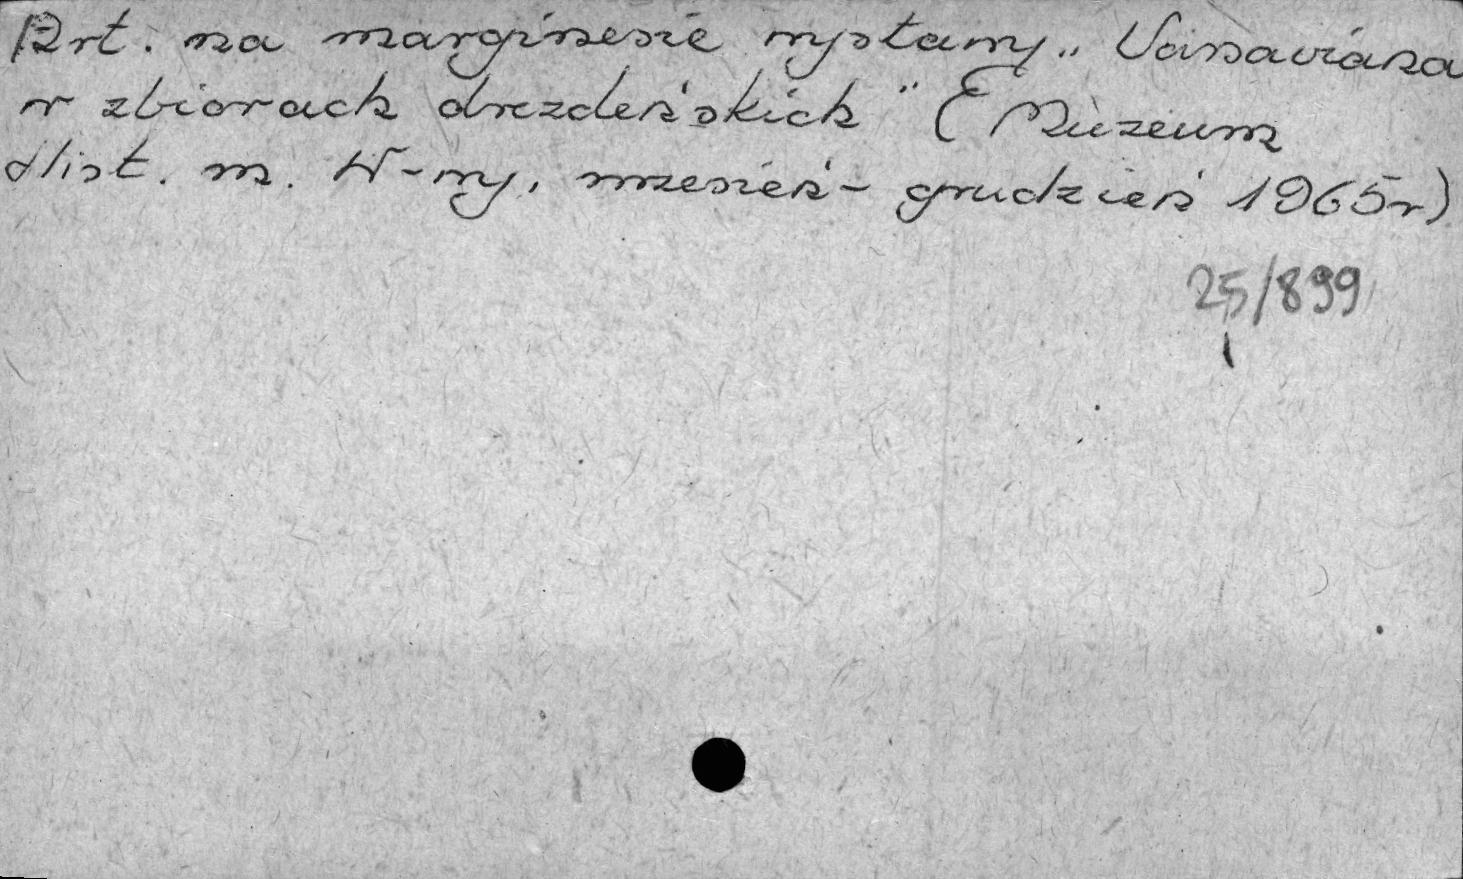 Art. na marginesie wystawy „Varsaviana
w zbiorach drezdeńskich" (Muzeum
Hist. m. W-wy, wrzesień - grudzień 1965 r)
25/899